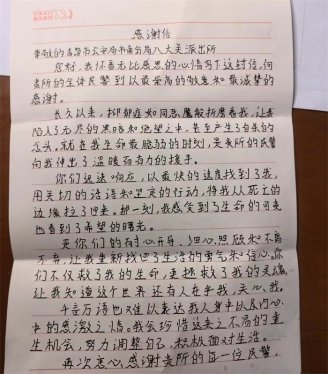 感谢信
尊敬的青岛市公安局市南分局八大关派出所
您好,我怀着无比感恩的心情写下这封信,向
贵所的全体民警到以最崇高的敬意和最诚挚的
感谢。
长久以来,抑郁症如同恶魔般折磨着我,让我
陷入了无尽的黑暗和绝望之中,甚至产生了自杀的
念头。就在我生命最脆弱的时刻,是贵所的民警
向我伸出了温暖而有力的援手。
你们迅速响应,以最快的速度找到了我,
用关切的话语和坚定的行动,将我从死亡的
边缘拉了回来。那一刻,我感受到了生命的可贵
也看到了希望的曙光。
是你们的耐心开导、细心照顾和不离
不弃,让我重新找回了生活的勇气和信心。你
们不仅救了我的生命,更拯救了我的灵魂,
让我知道这个世界还有人在乎我,关心我。
千言万语也难以表达我人身中以及内心
中的感激之情。我会珍惜这来之不易的重
生机会,努力调整自己,积极面对生活。
再次衷心感谢贵所的每一位民警,